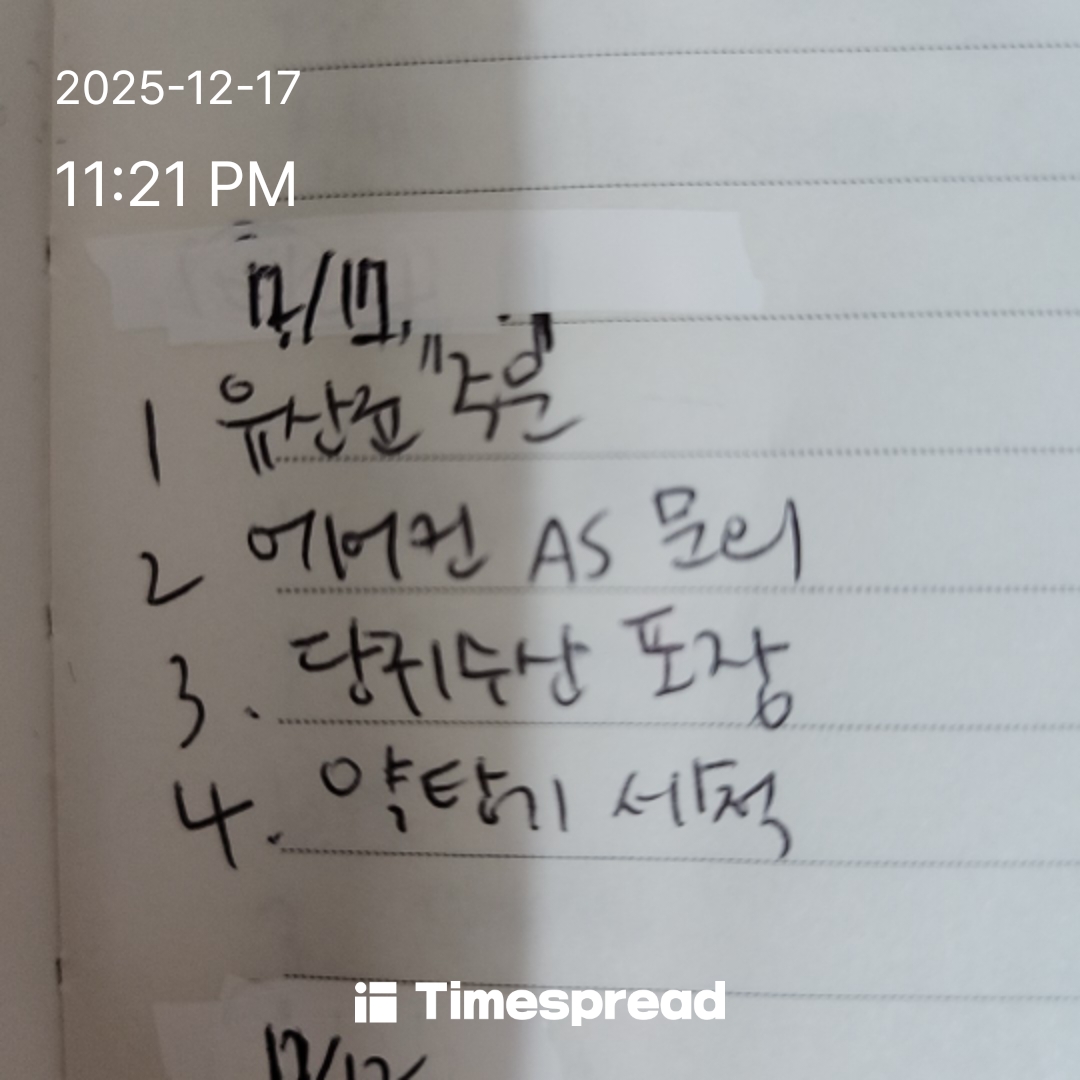 2025-12-17
11:21 PM
12/17,
1 유산균 "주문"
2 에어컨 AS 문의
3. 당귀수산 포장
4. 약탕기 세척
Timespread